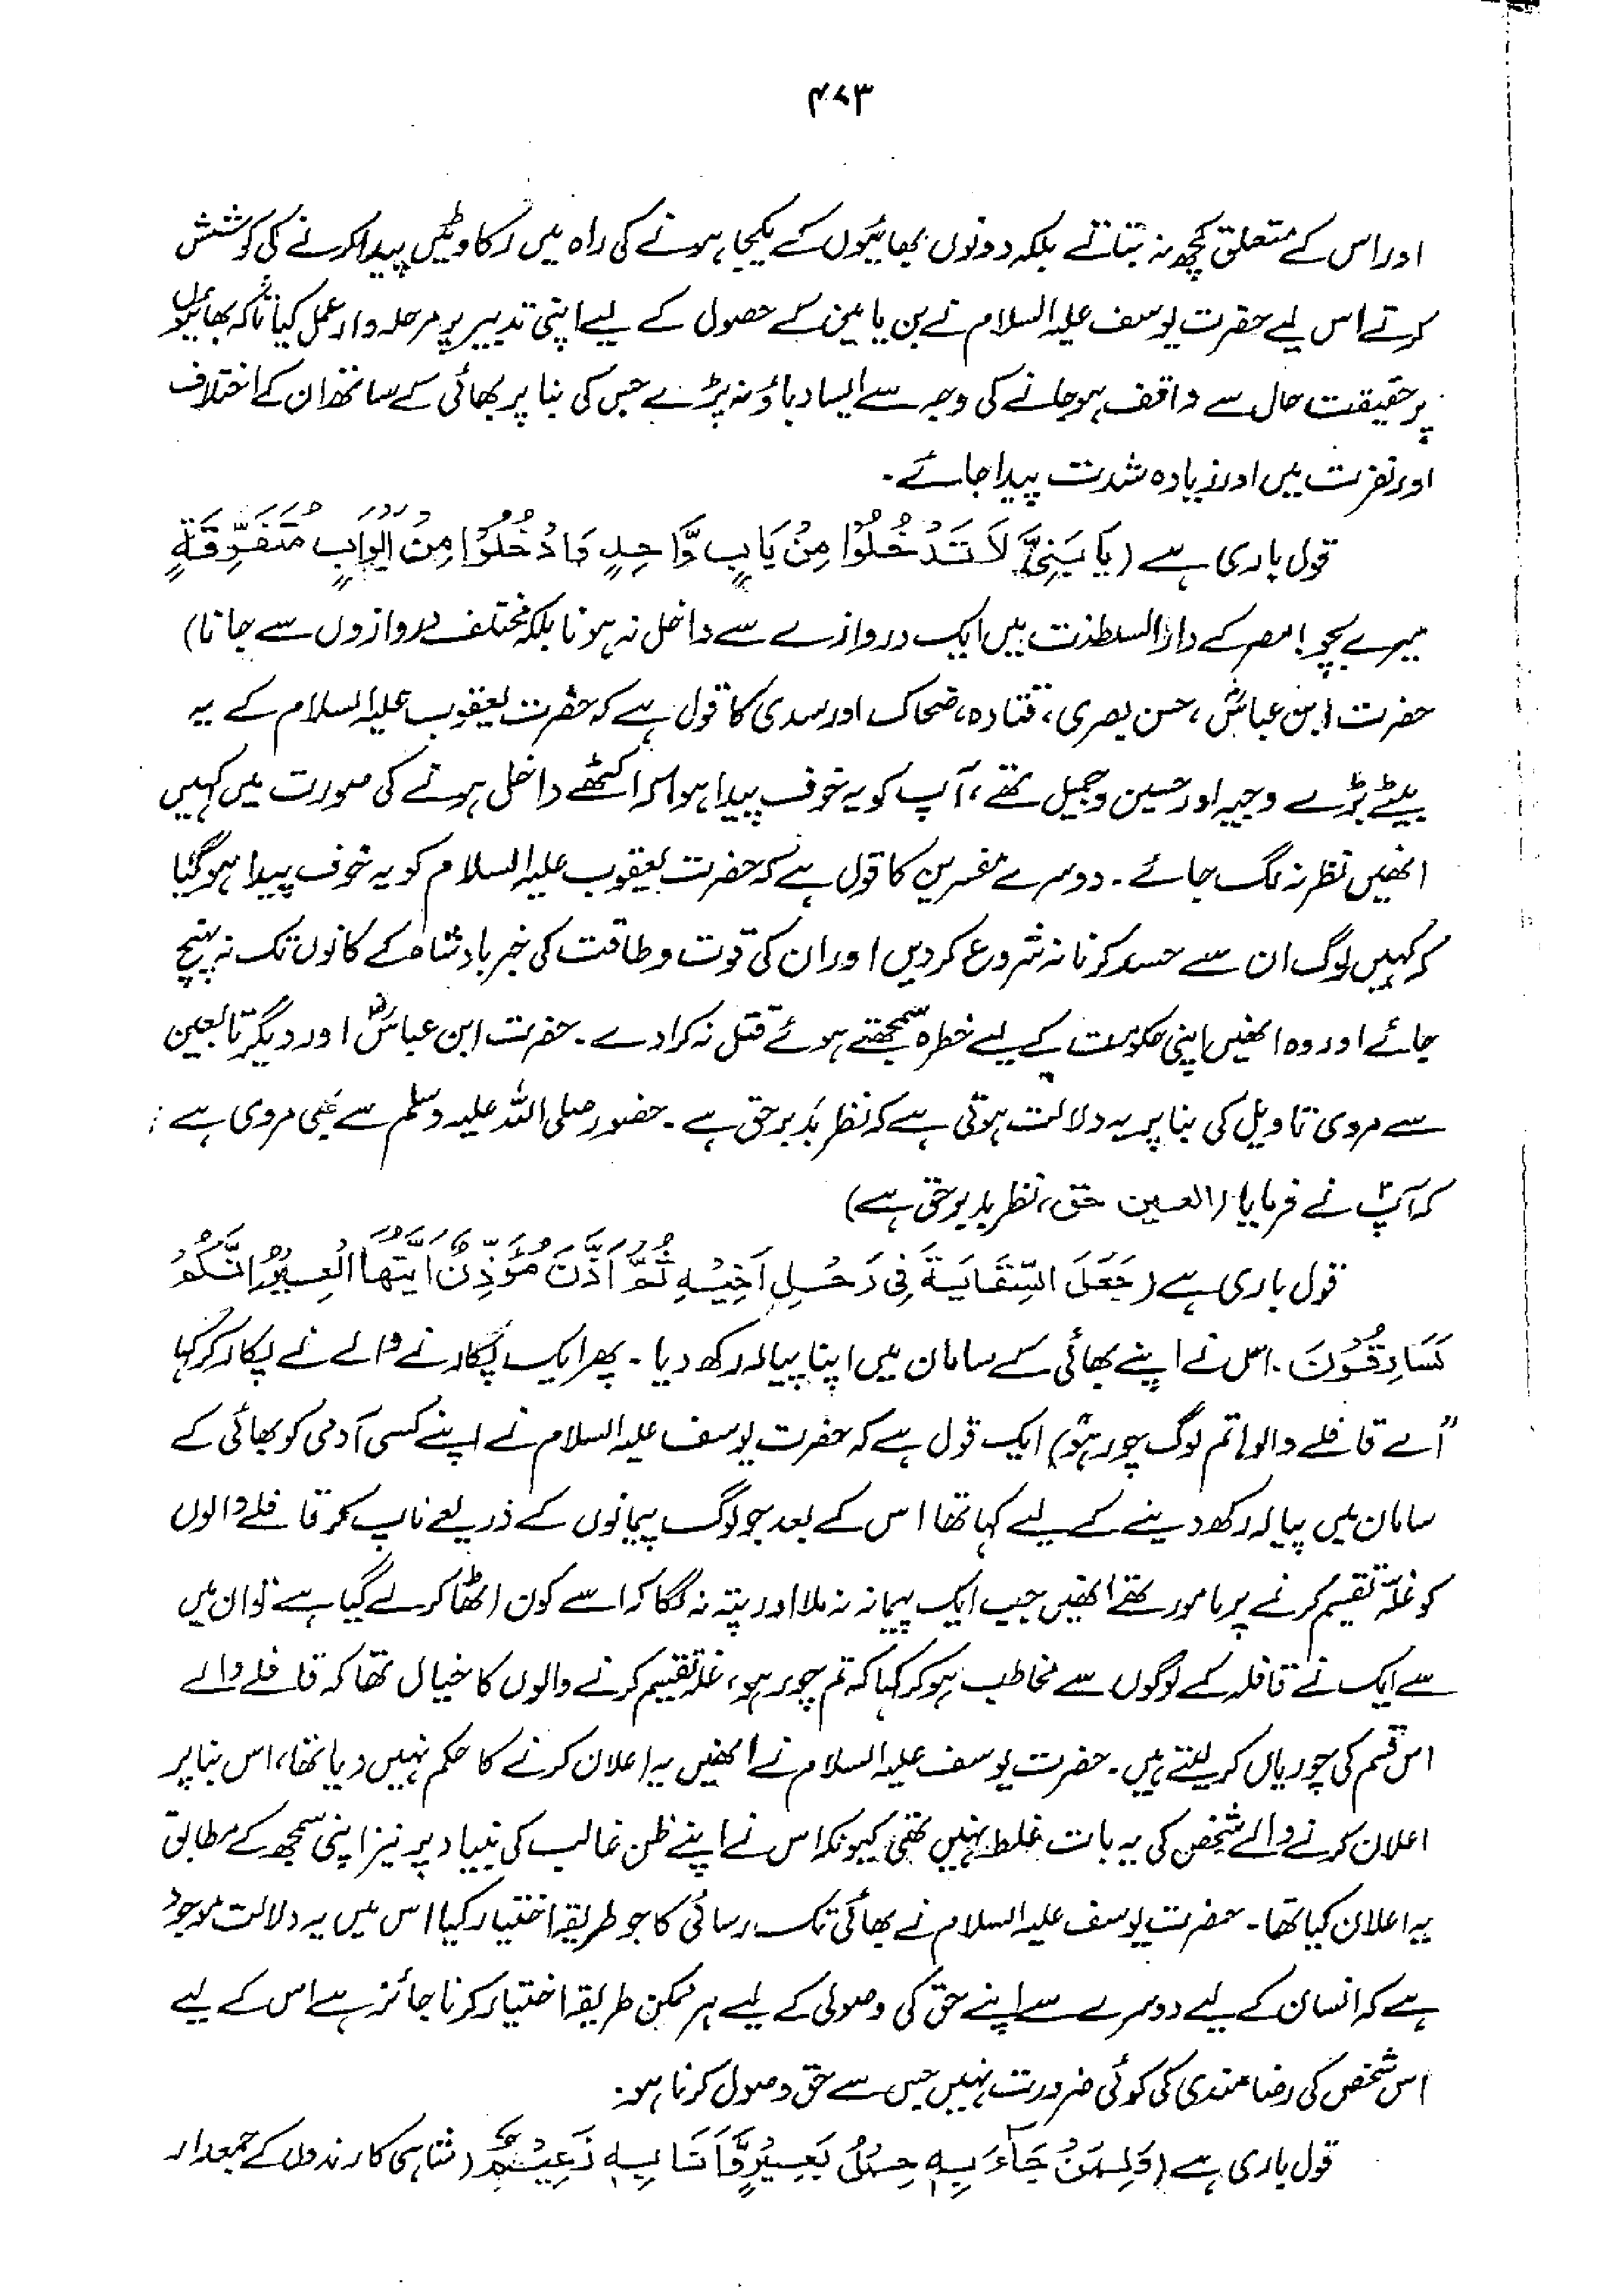 ۴۷۳
اور اس کے متعلق کچھ نہ بتاتے بلکہ دونوں بھائیوں کے یکجا ہونے کی راہ میں رکاوٹیں پیدا کرنے کی کوشش
کرتے اس لیے حضرت یوسف علیہ السلام نے بن یامین کے حصول کے لیے اپنی تدبیر پر مرحلہ وار عمل کیا تاکہ بھائیوں
پر حقیقت حال سے واقف ہو جانے کی وجہ سے ایسا دباؤ نہ پڑے جس کی بنا پر بھائی کے ساتھ ان کے اختلاف
اور نفرت میں اور زیادہ شدت پیدا جائے۔
قول باری ہے (يَا بَنِيَّ لَا تَدْخُلُوْا مِنْ بَابٍ وَّاحِدٍ وَادْخُلُوْا مِنْ اَبْوَابٍ مُتَفَرِّقَةٍ
میرے بچو! مصر کے دارالسلطنت میں ایک دروازے سے داخل نہ ہونا بلکہ مختلف دروازوں سے جانا)
حضرت ابن عباسؓ، حسن بصری، قتادہ، ضحاک اور سدی کا قول ہے کہ حضرت یعقوب علیہ السلام کے یہ
بیٹے بڑے وجیہ اور حسین و جمیل تھے، آپ کو یہ خوف پیدا ہوا کہ اکٹھے داخل ہونے کی صورت میں کہیں
انھیں نظر نہ لگ جائے۔ دوسرے مفسرین کا قول ہے کہ حضرت یعقوب علیہ السلام کو یہ خوف پیدا ہو گیا
کہ کہیں لوگ ان سے حسد کرنا نہ شروع کر دیں اور ان کی قوت و طاقت کی خبر بادشاہ کے کانوں تک نہ پہنچ
جائے اور وہ انھیں اپنی حکومت کے لیے خطرہ سمجھتے ہوئے قتل نہ کرا دے۔ حضرت ابن عباسؓ اور دیگر تابعین
سے مروی تاویل کی بنا پر یہ دلالت ہوتی ہے کہ نظر بد برحق ہے۔ حضور صلی اللہ علیہ وسلم سے بھی مروی ہے
کہ آپؐ نے فرمایا (العين حق، نظر بد برحق ہے)
قول باری ہے (جَعَلَ السِّقَايَةَ فِيْ رَحْلِ اَخِيْهِ ثُمَّ اَذَّنَ مُؤَذِّنٌ اَيَّتُهَا الْعِيْرُ اِنَّكُمْ
لَسَارِقُوْنَ۔ اس نے اپنے بھائی کے سامان میں اپنا پیالہ رکھ دیا۔ پھر ایک پکارنے والے نے پکار کر کہا
"اے قافلے والو! تم لوگ چور ہو") ایک قول ہے کہ حضرت یوسف علیہ السلام نے اپنے کسی آدمی کو بھائی کے
سامان میں پیالہ رکھ دینے کے لیے کہا تھا اس کے بعد جو لوگ پیمانوں کے ذریعے ناپ کر قافلے والوں
کو غلّہ تقسیم کرنے پر مامور تھے انھیں جب ایک پیمانہ نہ ملا اور پتہ نہ لگا کہ اسے کون اٹھا کر لے گیا ہے تو ان میں
سے ایک نے قافلہ کے لوگوں سے مخاطب ہو کر کہا کہ تم چور ہو، غلہ تقسیم کرنے والوں کا خیال تھا کہ قافلے والے
اس قسم کی چوریاں کر لیتے ہیں۔ حضرت یوسف علیہ السلام نے انھیں یہ اعلان کرنے کا حکم نہیں دیا تھا، اس بنا پر
اعلان کرنے والے شخص کی یہ بات غلط نہیں تھی کیونکہ اس نے اپنے ظن غالب کی بنیاد پر نیز اپنی سمجھ کے مطابق
یہ اعلان کیا تھا۔ حضرت یوسف علیہ السلام نے بھائی تک رسائی کا جو طریقہ اختیار کیا اس میں یہ دلالت موجود
ہے کہ انسان کے لیے دوسرے سے اپنے حق کی وصولی کے لیے ہر ممکن طریقہ اختیار کرنا جائز ہے اس کے لیے
اس شخص کی رضامندی کی کوئی ضرورت نہیں جس سے حق وصول کرنا ہو۔
قول باری ہے (وَلِمَنْ جَآءَ بِهٖ حِمْلُ بَعِيْرٍ وَّاَنَا بِهٖ زَعِيْمٌ (شاہی کارندوں کے جمعدار